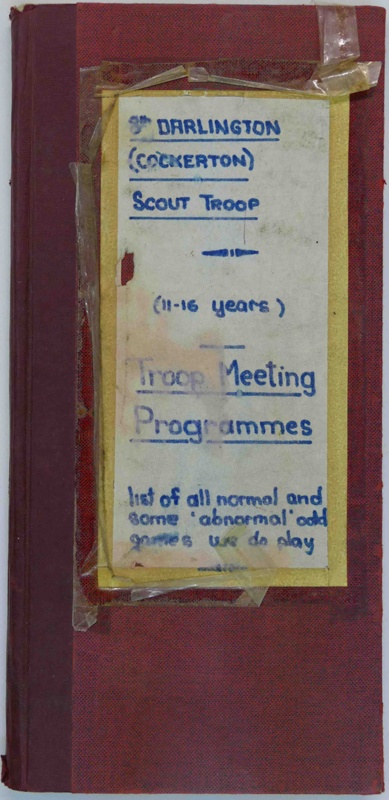 8th DARLINGTON
(COCKERTON)
SCOUT TROOP
(11-16 years)
Troop Meeting
Programmes
list of all normal and
some 'abnormal' odd
games we do play